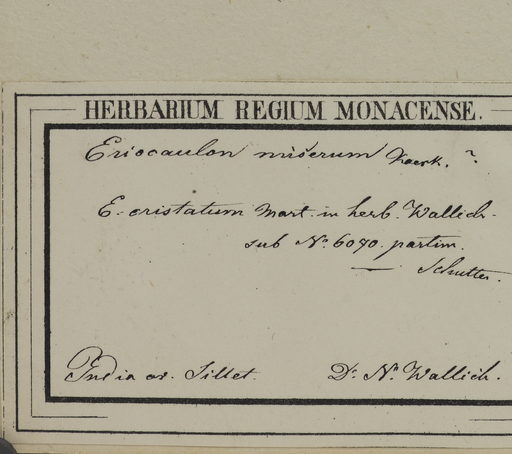 HERBARIUM REGIUM MONACENSE.
Eriocaulon miserum Koerk. ?
E. cristatum Mart. in herb. Wallich.
sub No. 6070. partim.
— Schutter.
India or. Sillet. Dr. N. Wallich.